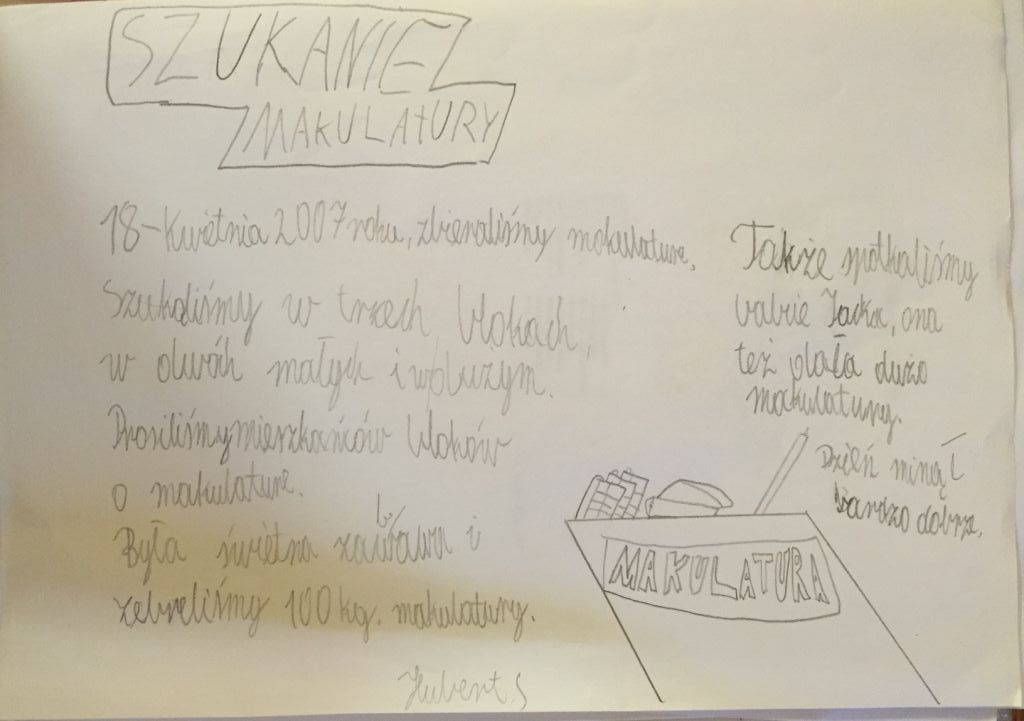 SZUKANIE
MAKULATURY
18-Kwietnia 2007 roku, zbieraliśmy makulature.
Szukaliśmy w trzech blokach,
w dwóch małych i w dużym.
Prosiliśmy mieszkańców bloków
o makulature.
Była świetna zabawa i
zebraliśmy 100 kg. makulatury.
Także spotkaliśmy
babcie Jacka, ona
też dała dużo
makulatury.
Dzień minął
bardzo dobrze.
MAKULATURA
Hubert S